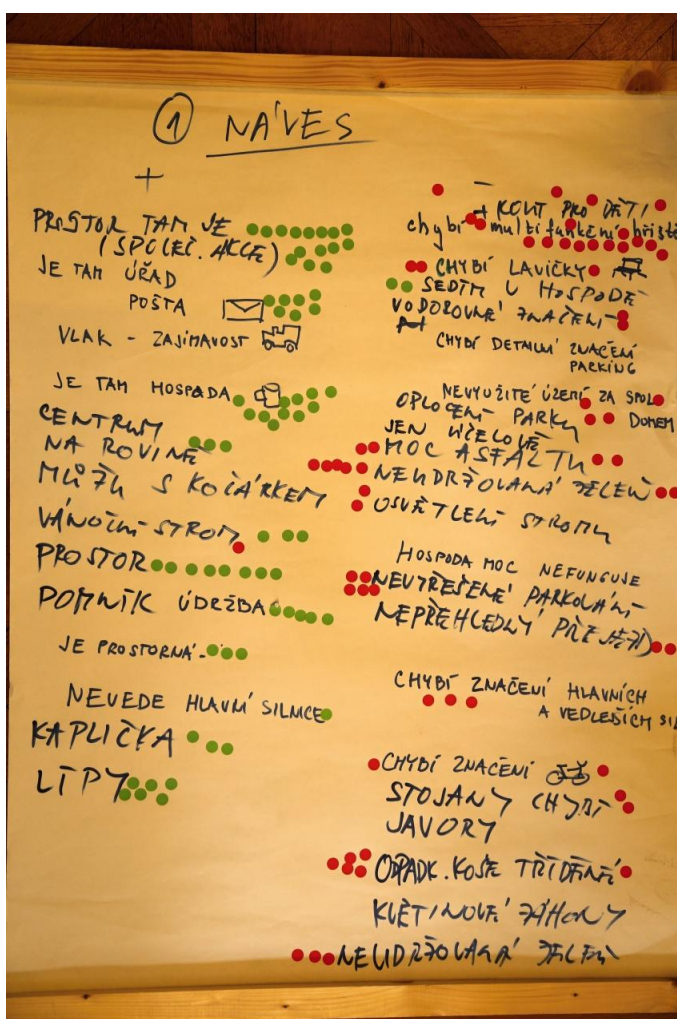 1 NÁVES
+
PROSTOR TAM JE
(SPOLEČ. AKCE)
JE TAM ÚŘAD
POŠTA
VLAK - ZAJÍMAVOST
JE TAM HOSPODA
CENTRUM
NA ROVINĚ
MŮŽU S KOČÁRKEM
VÁNOČNÍ STROM
PROSTOR
POMNÍK ÚDRŽBA
JE PROSTORNÁ
NEVEDE HLAVNÍ SILNICE
KAPLIČKA
LÍPY
-
KOUT PRO DĚTI
chybí multifunkční hřiště
CHYBÍ LAVIČKY
SEDÍM U HOSPODĚ
VODOROVNÉ ZNAČENÍ
CHYBÍ DETAILNÍ ZNAČENÍ
PARKING
NEVYUŽITÉ ÚZEMÍ ZA SPOL
DOMEM
OPLOCENÍ PARKU
JEN ÚČELOVĚ
MOC ASFALTU
NEUDRŽOVANÁ ZELEŇ
OSVĚTLENÍ STROMU
HOSPODA MOC NEFUNGUJE
NEVYŘEŠENÉ PARKOVÁNÍ
NEPŘEHLEDNÝ PŘEJEZD
CHYBÍ ZNAČENÍ HLAVNÍCH
A VEDLEJŠÍCH SIL
CHYBÍ ZNAČENÍ
STOJANY CHYBÍ
JAVORY
ODPADK. KOŠE TŘÍDĚNÉ
KVĚTINOVÉ ZÁHONY
NEUDRŽOVANÁ ZELEŇ